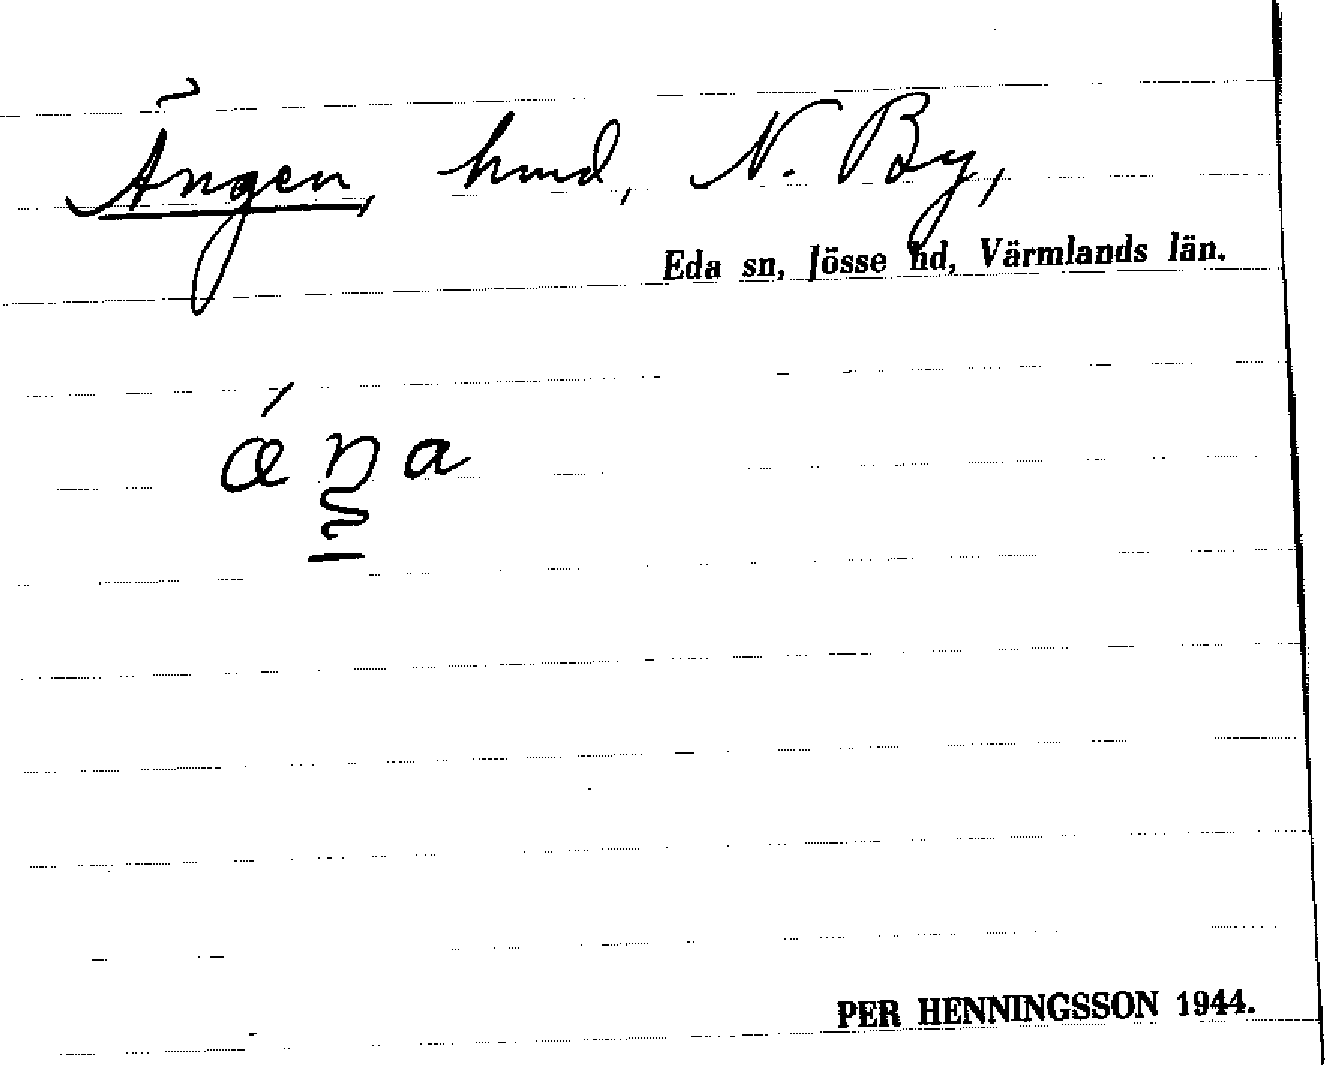 Ängen, hmd, N. By,
Eda sn, Jösse hd, Värmlands län.
PER HENNINGSSON 1944.